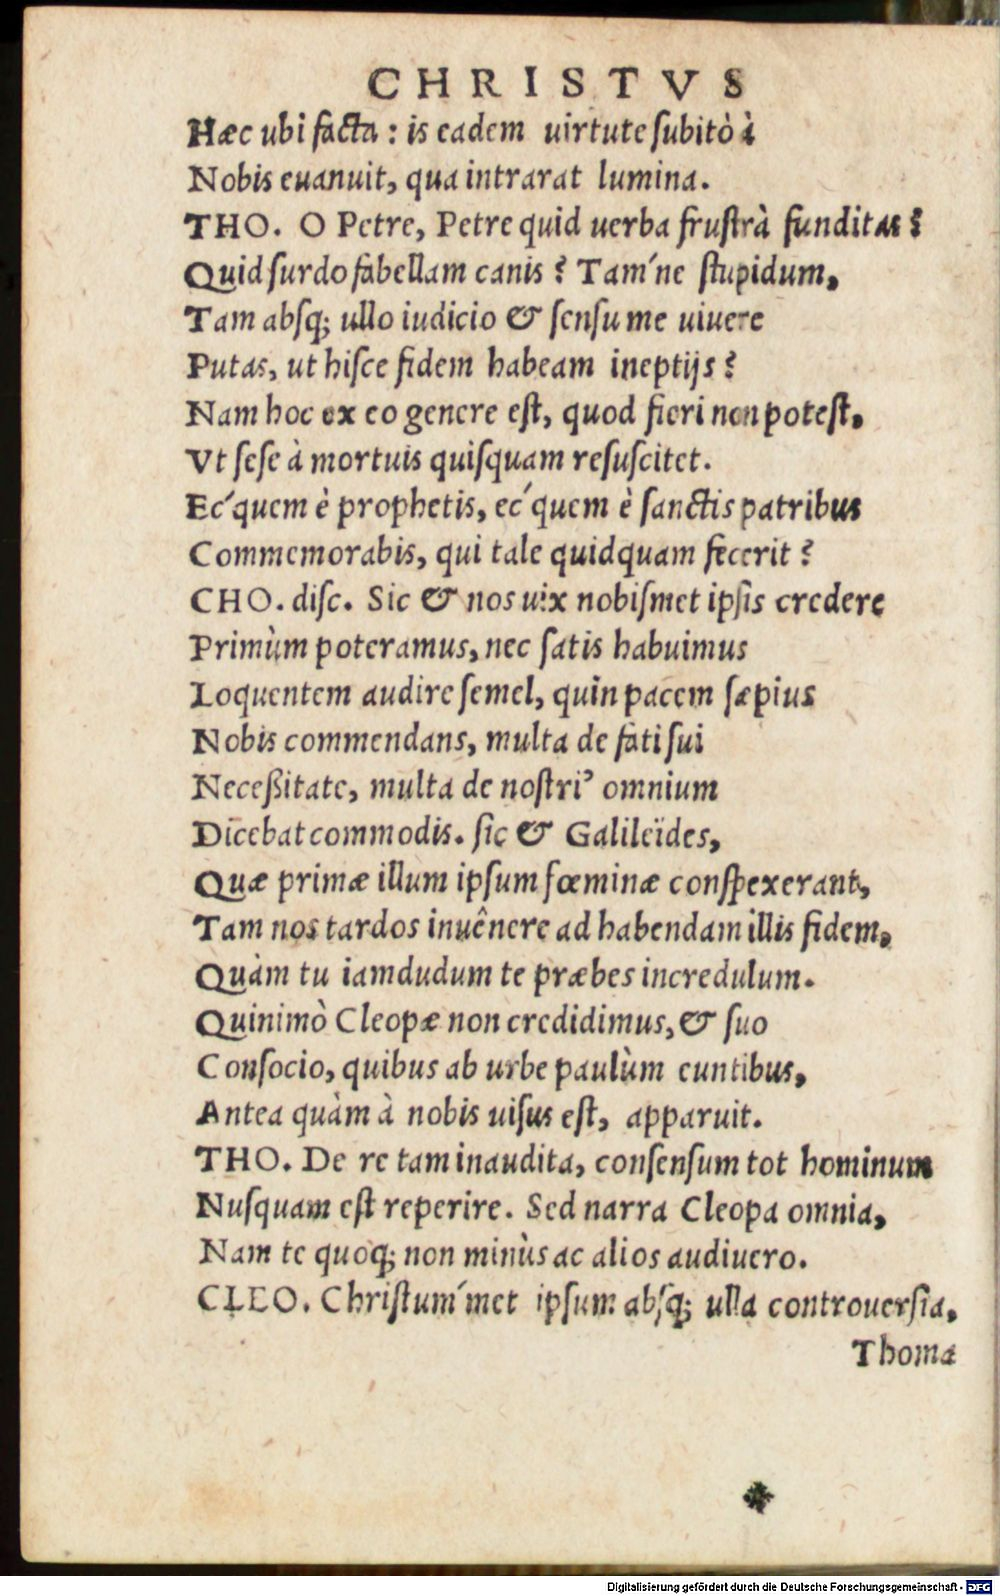 CHRISTVS
Hæc ubi facta : is eadem uirtute ſubitò à
Nobis euanuit, qua intrarat lumina.
THO. O Petre, Petre quid uerba fruſtrà funditas?
Quid ſurdo fabellam canis? Tam´ne ſtupidum,
Tam abſq; ullo iudicio & ſenſu me uiuere
Putas, ut hiſce fidem habeam ineptijs?
Nam hoc ex eo genere eſt, quod fieri non poteſt,
Vt ſeſe à mortuis quiſquam reſuſcitet.
Ec´quem è prophetis, ec´quem è ſanctis patribus
Commemorabis, qui tale quidquam fecerit?
CHO. diſc. Sic & nos uix nobiſmet ipſis credere
Primùm poteramus, nec ſatis habuimus
Loquentem audire ſemel, quin pacem ſæpius
Nobis commendans, multa de fati ſui
Neceßitate, multa de noſtri’ omnium
Dicebat commodis. ſic & Galileïdes,
Quæ primæ illum ipſum fœminæ conſpexerant,
Tam nos tardos inuênere ad habendam illis fidem,
Quàm tu iamdudum te præbes incredulum.
Quinimò Cleopæ non credidimus, & ſuo
Conſocio, quibus ab urbe paulùm euntibus,
Antea quàm à nobis uiſus eſt, apparuit.
THO. De re tam inaudita, conſenſum tot hominum
Nuſquam eſt reperire. Sed narra Cleopa omnia,
Nam te quoq; non minùs ac alios audiuero.
CLEO. Chriſtum´met ipſum abſq; ulla controuerſia,
Thoma
Digitalisierung gefördert durch die Deutsche Forschungsgemeinschaft - DFG